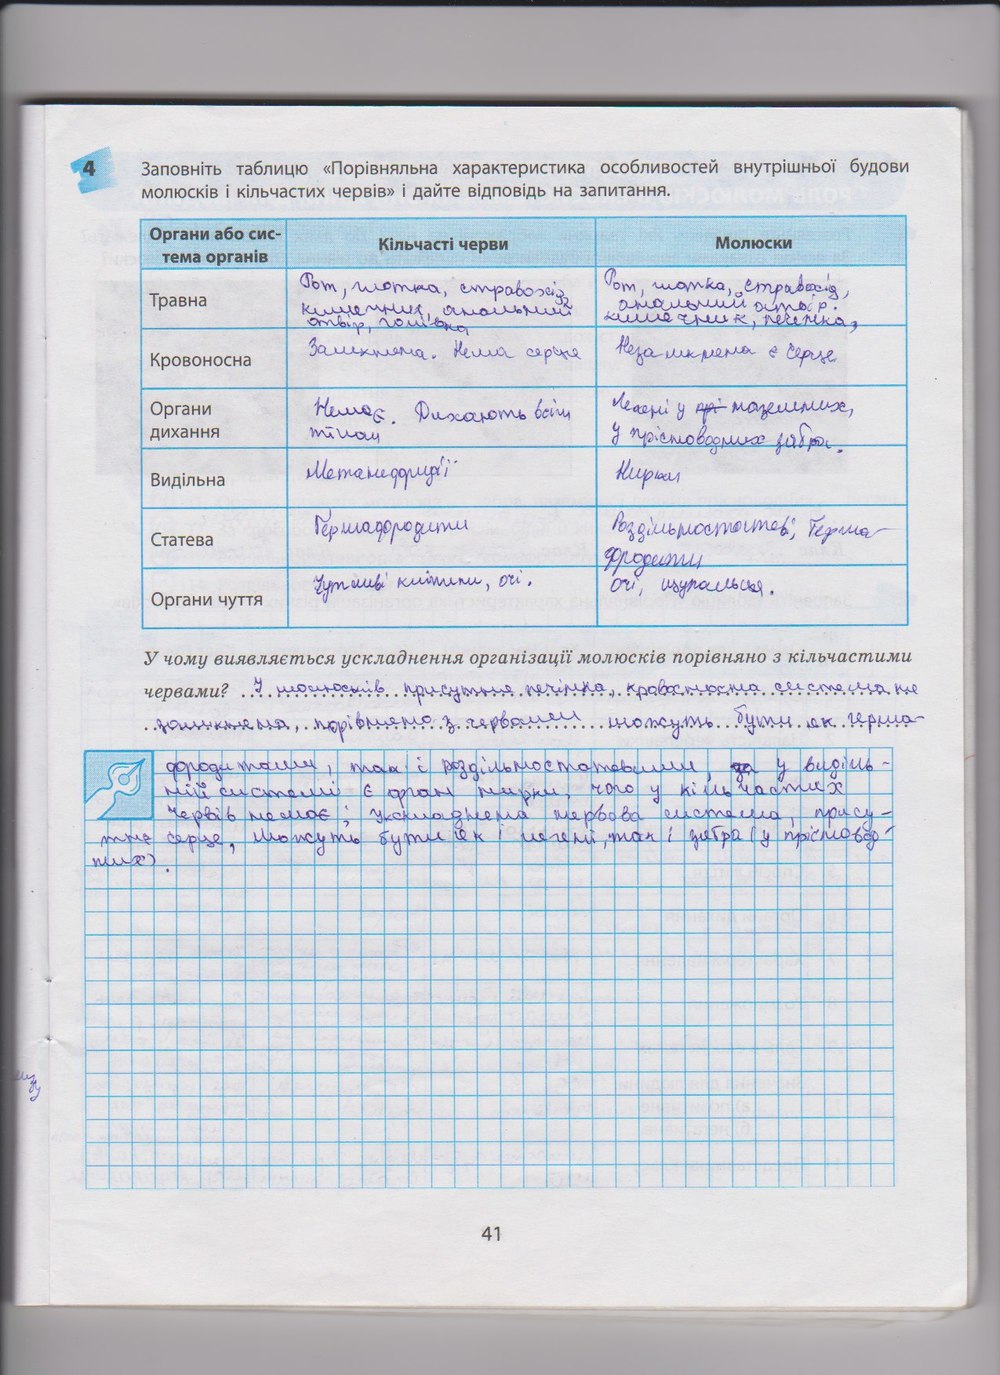 4
Заповніть таблицю «Порівняльна характеристика особливостей внутрішньої будови
молюсків і кільчастих червів» і дайте відповідь на запитання.
Органи або сис-
тема органів
Кільчасті черви
Молюски
Травна
Рот, глотка, стравохід,
кишечник, анальний
отвір, голівка
Рот, глотка, стравохід,
анальний отвір.
кишечник, печінка,
Кровоносна
Замкнена. Нема серця
Незамкнена є серце
Органи
дихання
Немає. Дихають всім
тілом
Легені у наземних,
у прісноводних зябра.
Видільна
Метанефридії
Нирки
Статева
Гермафродити
Роздільностатеві, Герма-
фродити
Органи чуття
Чутливі клітини, очі.
Очі, щупальця.
У чому виявляється ускладнення організації молюсків порівняно з кільчастими
червами? У молюсків присутня печінка, кровоносна система не
замкнена, порівняно з червами можуть бути як герма-
фродитами, так і роздільностатевими, у виділь-
ній системі є орган нирки, чого у кільчастих
червів немає; ускладнена нервова система, прису-
тнє серце, можуть бути як і легені, так і зябра (у прісновод-
них).
41